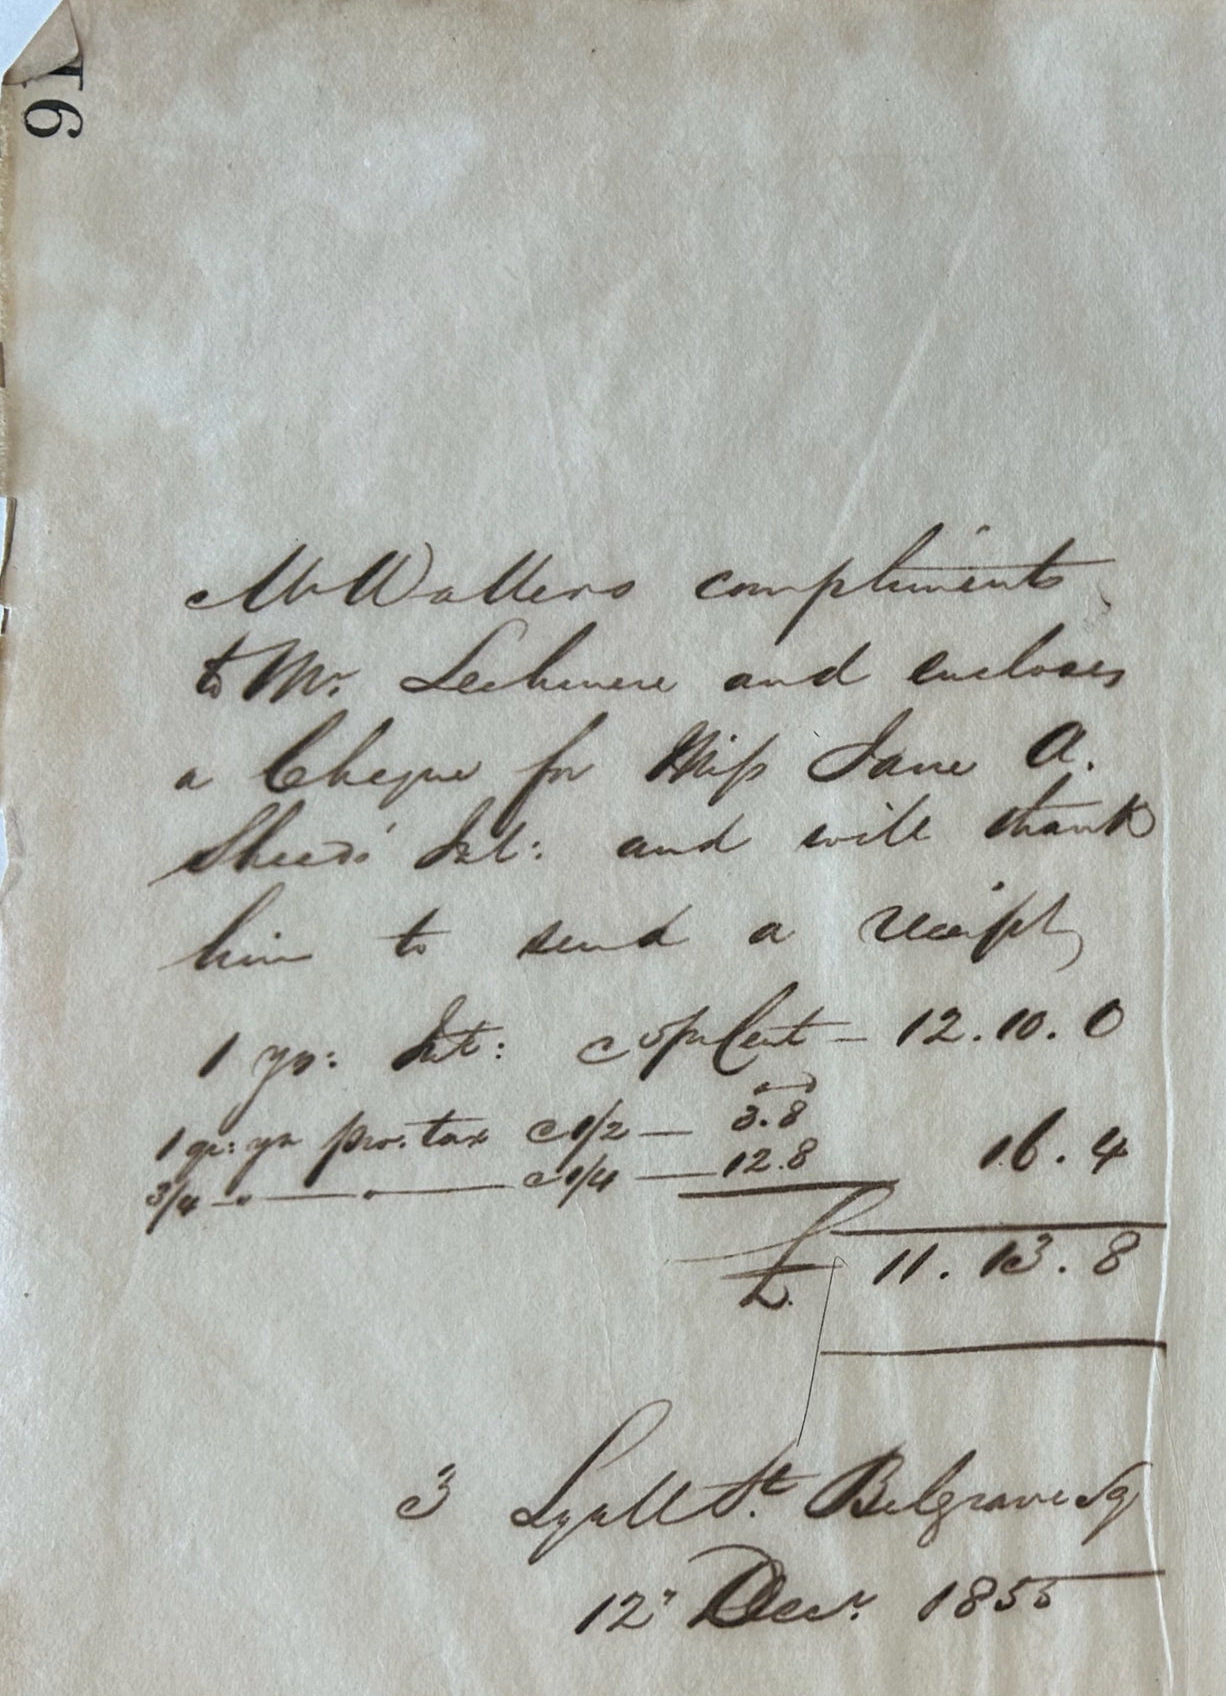 91
Mr Walters compliments
to Mr. Lechmere and encloses
a Cheque for Miss Jane A.
Int: and will thank
him to send a receipt
1 yr: Int: @ 5 pr Cent — 12.10.0
1 qr: yr pro. tax @ 1/2 — 3.8
3/4 — " — " — @ 1/4 — 12.8 16.4
£ 11.13.8
3 Lyall St. Belgrave Sq
12" Decr. 1855